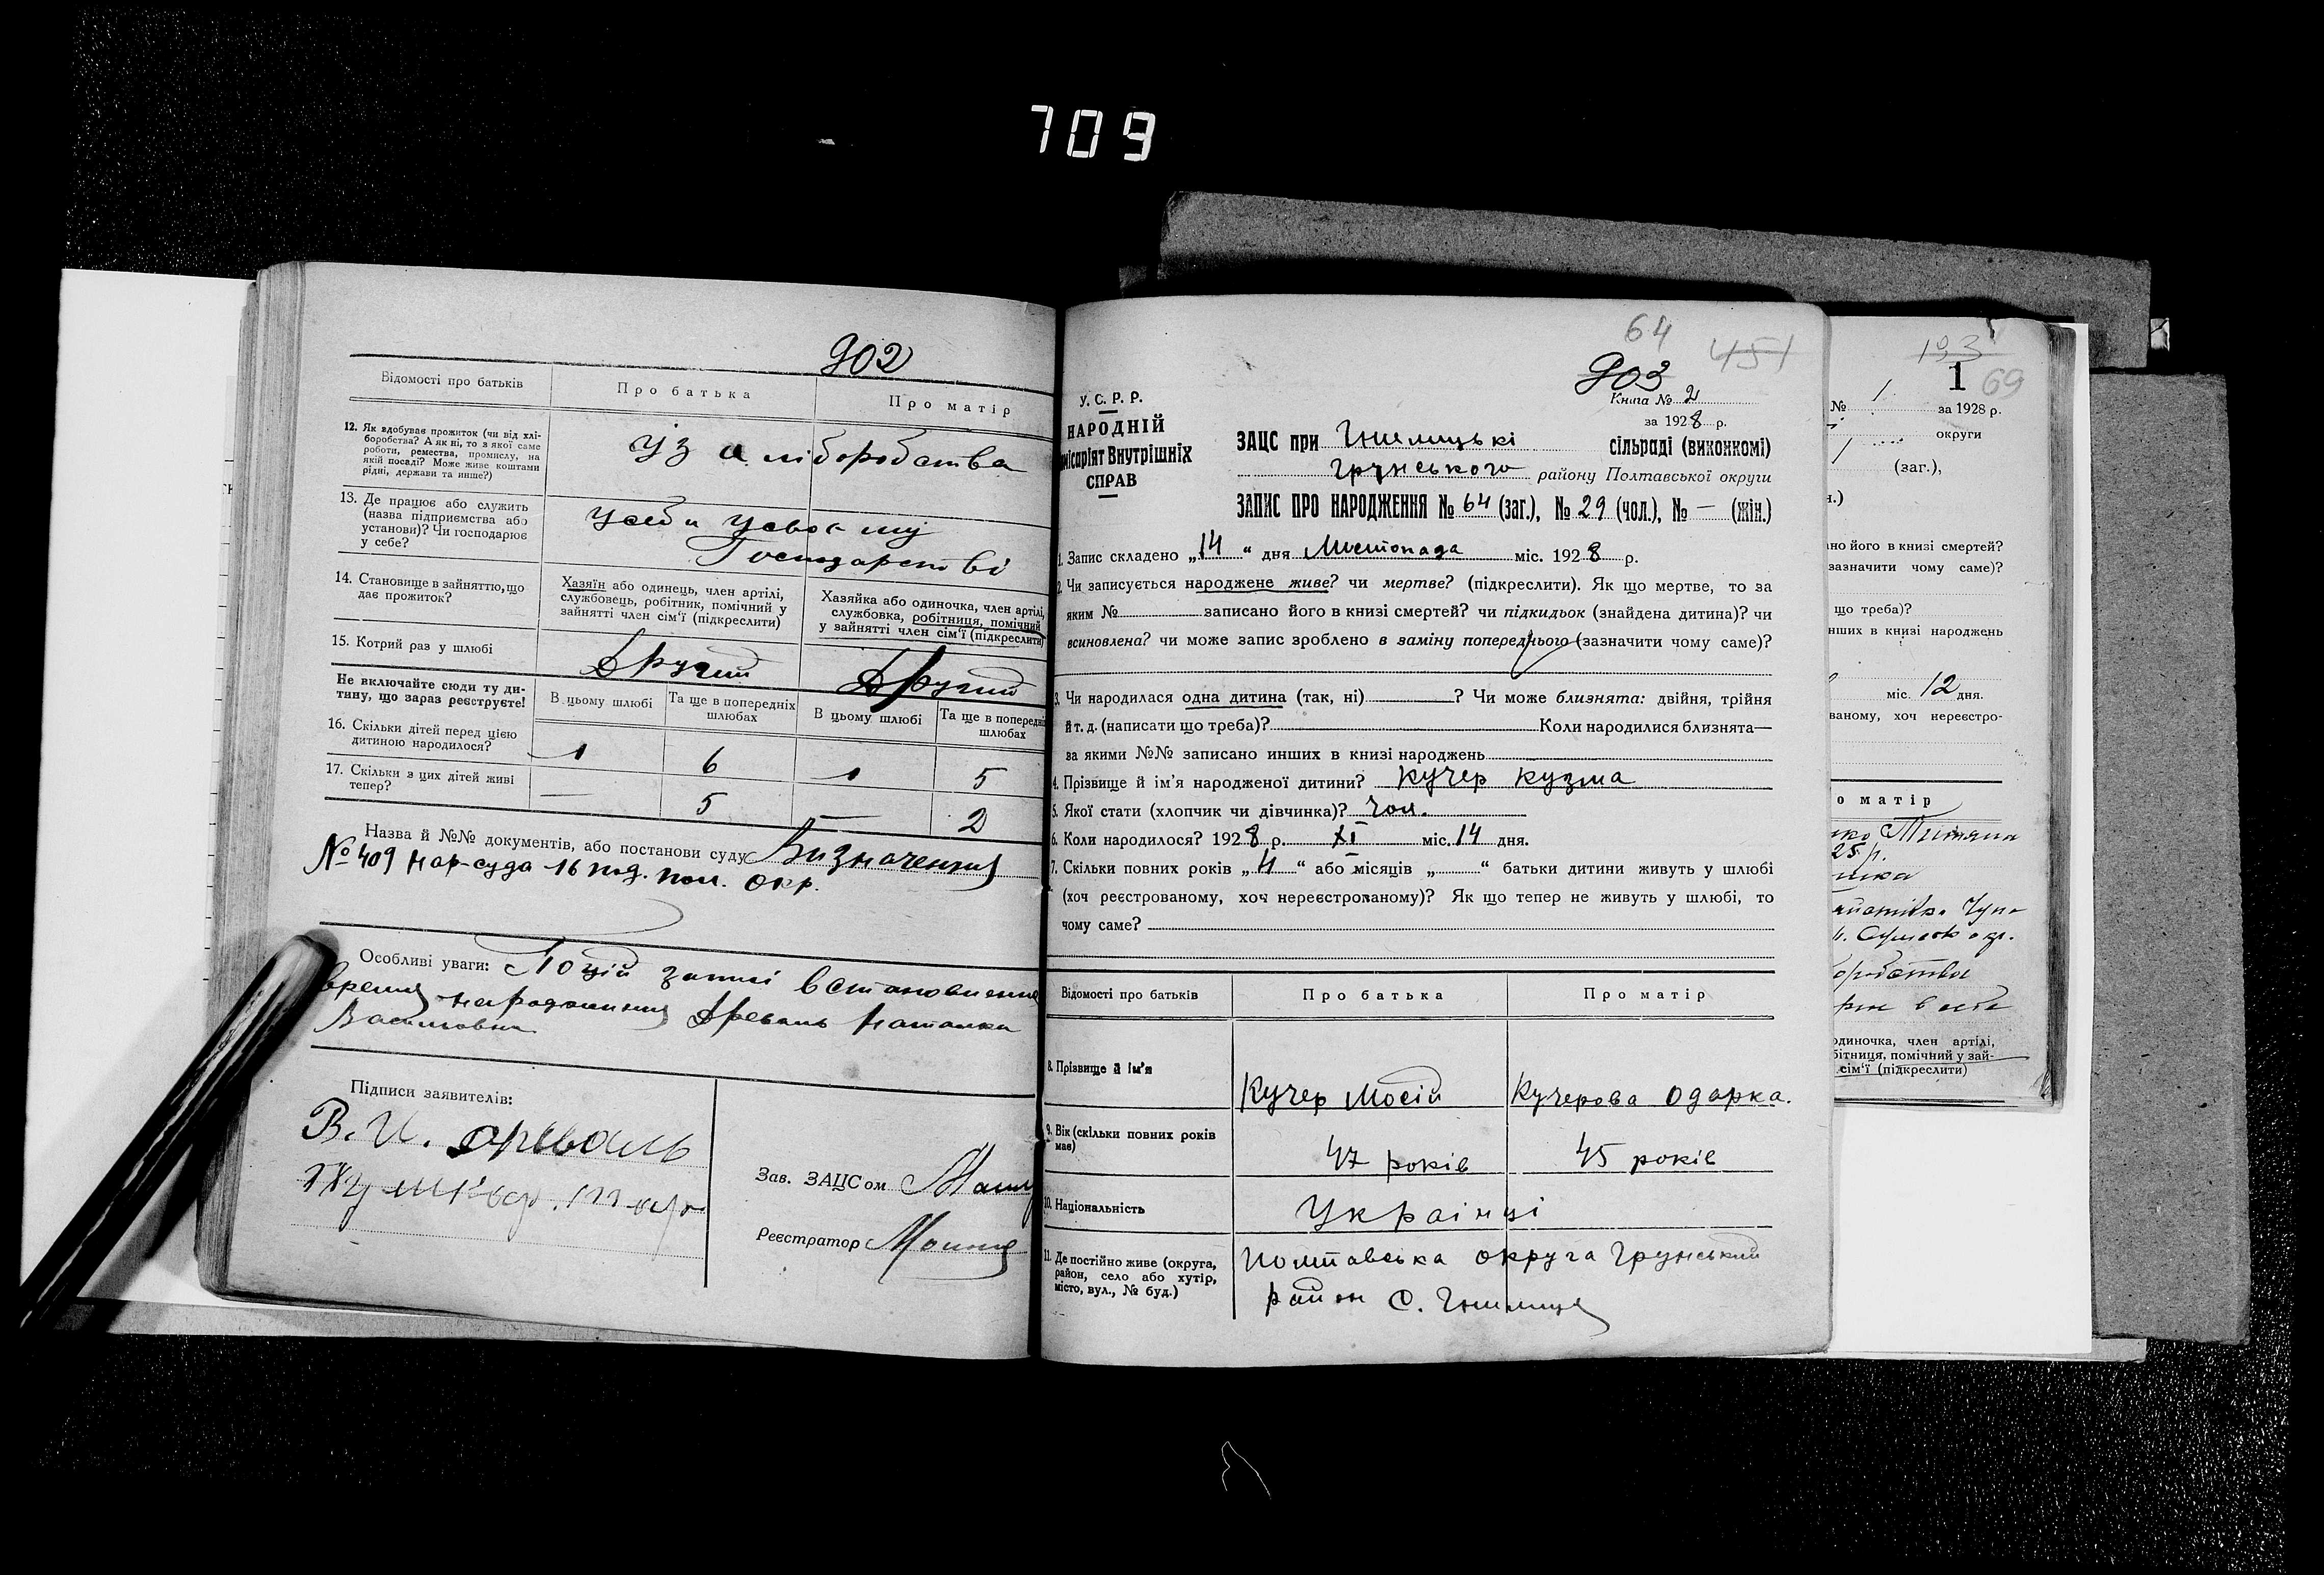 709
902
Відомості про батьків
Про батька
Про матір
12. Як здобуває прожиток (чи від хлі-
боробства? А як ні, то з якої саме
роботи, ремества, промислу, на
якій посаді? Може живе коштами
рідні, держави та инше?)
13. Де працює або служить
(назва підприємства або
установи)? Чи господарює
у себе?
Господарстві
14. Становище в зайняттю, що
дає прожиток?
Хазяїн або одинець, член артілі,
службовець, робітник, помічний у
зайнятті член сім'ї (підкреслити)
Хазяйка або одиночка, член артілі,
службовка, робітниця, помічний
у зайнятті член сім'ї (підкреслити)
15. Котрий раз у шлюбі
Другий
Другий
Не включайте сюди ту ди-
тину, що зараз реєструєте!
В цьому шлюбі
Та ще в попередніх
шлюбах
В цьому шлюбі
Та ще в попередні
шлюбах
16. Скільки дітей перед цією
дитиною народилося?
1
6
1
5
17. Скільки з цих дітей живі
тепер?
—
5
—
2
Назва й №№ документів, або постанови суду Визначення
№ 409 нар-суда 16 под. пол. окр.
Особливі уваги: По цій записі встановлення
время народження Древаль Наталка
Василовна
Підписи заявителів:
В. И.
Зав. ЗАЦСом
Реєстратор
64
451
903
У. С. Р. Р.
НАРОДНІЙ
місаріят Внутрішніх
СПРАВ
Книга № 2
за 1928 р.
ЗАЦС при Гнилицькі сільраді (виконкомі)
Грунського району Полтавської округи
ЗАПИС ПРО НАРОДЖЕННЯ № 64 (заг.), № 29 (чол.), № — (жін.)
1. Запис складено „14“ дня Листопада міс. 1928 р.
2. Чи записується народжене живе? чи мертве? (підкреслити). Як що мертве, то за
яким № записано його в книзі смертей? чи підкидьок (знайдена дитина)? чи
всиновлена? чи може запис зроблено в заміну попереднього (зазначити чому саме)?
3. Чи народилася одна дитина (так, ні) ? Чи може близнята: двійня, трійня
й т. д. (написати що треба)? Коли народилися близнята—
за якими №№ записано инших в книзі народжень
4. Прізвище й ім'я народженої дитини? Кучер Кузма
5. Якої стати (хлопчик чи дівчинка)? чол.
6. Коли народилося? 1928 р. XI міс. 14 дня.
7. Скільки повних років „4“ або місяців „ “ батьки дитини живуть у шлюбі
(хоч реєстрованому, хоч нереєстрованому)? Як що тепер не живуть у шлюбі, то
чому саме?
Відомості про батьків
Про батька
Про матір
8. Прізвище й ім'я
Кучер Мосій
Кучерова Одарка.
9. Вік (скільки повних років
має)
47 років
45 років
10. Національність
Українці
11. Де постійно живе (округа,
район, село або хутір,
місто, вул., № буд.)
Полтавська округа Грунський
район С. Гнилиця
193
1
69
№ 1 за 1928 р.
округи
1 (заг.),
н.)
но його в книзі смертей?
зазначити чому саме)?
що треба)?
нших в книзі народжень
міс. 12 дня.
ваному, хоч нереєстро-
о матір
25 р.
одиночка, член артілі,
бітниця, помічний у зай-
сім'ї (підкреслити)